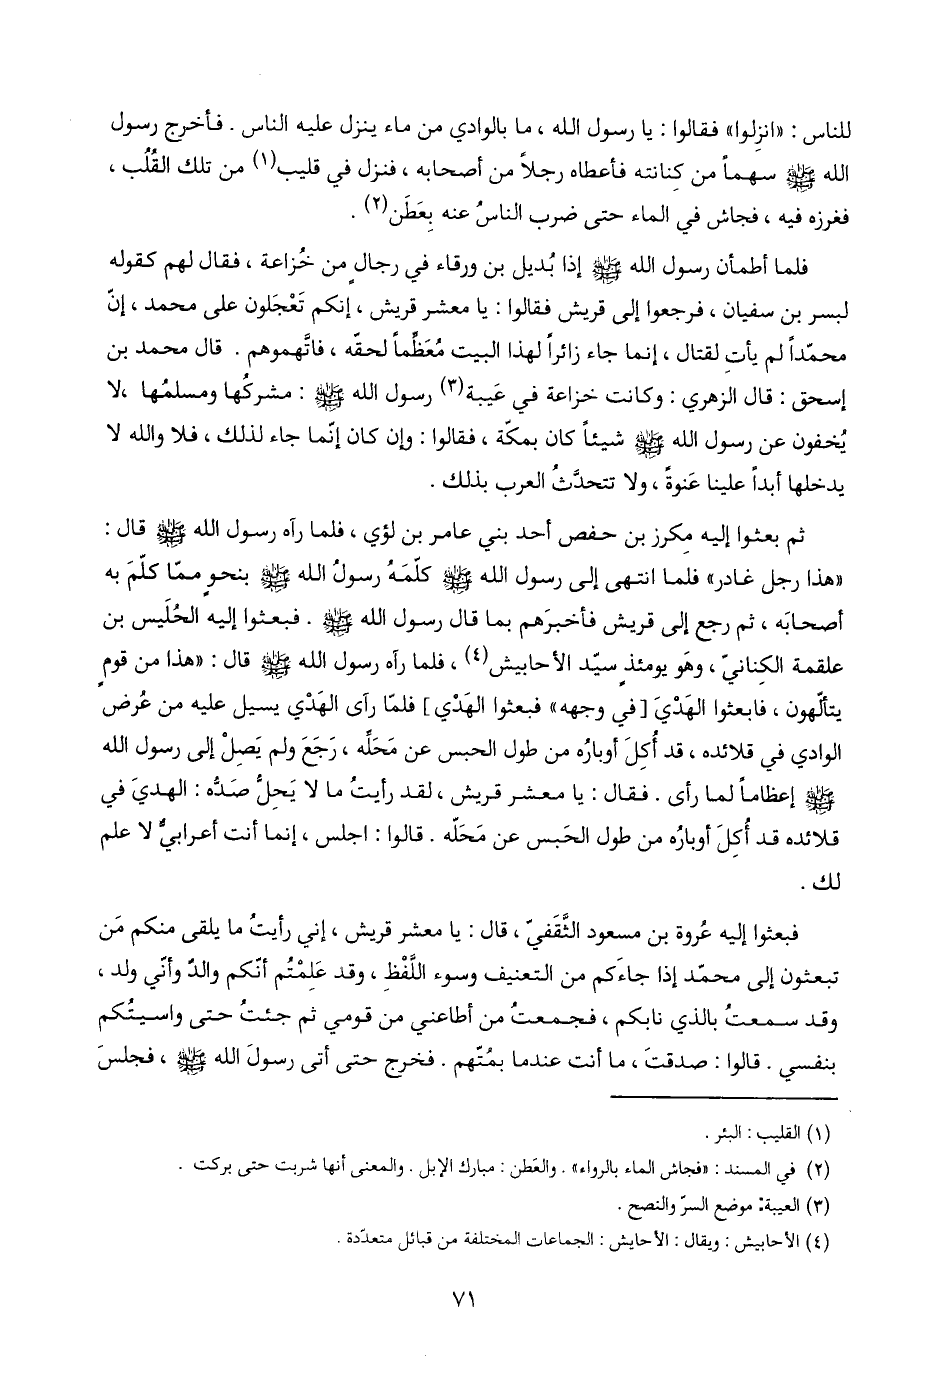 للناس : «انزِلوا» فقالوا : يا رسول الله ، ما بالوادي من ماء ينزل عليه الناس . فأخرج رسول
الله ﷺ سهماً من كِنانته فأعطاه رجلاً من أصحابه ، فنزل في قليب(١) من تلك القُلُب ،
فغرزه فيه ، فجاش في الماء حتى ضرب الناسُ عنه بِعَطَن(٢) .
فلما أطمأن رسول الله ﷺ إذا بُديل بن ورقاء في رجالٍ من خُزاعة ، فقال لهم كقوله
لبسر بن سفيان ، فرجعوا إلى قريش فقالوا : يا معشر قريش ، إنكم تَعْجَلون على محمد ، إنّ
محمّداً لم يأتِ لقتال ، إنما جاء زائراً لهذا البيت مُعَظِّماً لحقّه ، فاتَّهموهم . قال محمد بن
إسحق : قال الزهري : وكانت خزاعة في عَيبة(٣) رسول الله ﷺ : مشركُها ومسلمُها ،لا
يُخفون عن رسول الله ﷺ شيئاً كان بمكّة ، فقالوا : وإن كان إنّما جاء لذلك ، فلا والله لا
يدخلها أبداً علينا عَنوةً ، ولا تتحدَّثُ العرب بذلك .
ثم بعثوا إليه مِكرز بن حفص أحد بني عامر بن لؤي ، فلما رآه رسول الله ﷺ قال :
«هذا رجل غادر» فلما انتهى إلى رسول الله ﷺ كلّمَهُ رسولُ الله ﷺ بنحوٍ ممّا كلّمَ به
أصحابَه ، ثم رجع إلى قريش فأخبرَهم بما قال رسول الله ﷺ . فبعثوا إليه الحُلَيس بن
علقمة الكِنانيّ ، وهَو يومئذٍ سيّد الأحابيش(٤) ، فلما رآه رسول الله ﷺ قال : «هذا من قومٍ
يتألّهون ، فابعثوا الهَدْيَ [في وجهه» فبعثوا الهَدْي] فلمّا رآى الهَدْي يسيل عليه من عُرض
الوادي في قلائده ، قد أُكِلَ أوبارُه من طول الحبس عن مَحَلِّه ، رَجَعَ ولم يَصِلْ إلى رسول الله
ﷺ إعظاماً لما رأى . فقال : يا معشر قريش ، لقد رأيتُ ما لا يَحِلُّ صَدُّه : الهديَ في
قلائده قد أُكِلَ أوبارُه من طول الحَبس عن مَحَلّه . قالوا : اجلس ، إنما أنت أعرابيٌّ لا علم
لك .
فبعثوا إليه عُروة بن مسعود الثَّقَفيّ ، قال : يا معشر قريش ، إني رأيتُ ما يلقى منكم مَن
تبعثون إلى محمّد إذا جاءَكم من التعنيف وسوء اللَّفْظِ ، وقد عَلِمْتُم أنّكم والدٌ وأنّي ولد ،
وقد سمعتُ بالذي نابكم ، فجمعتُ من أطاعني من قومي ثم جئتُ حتى واسيتُكم
بنفسي . قالوا : صدقتَ ، ما أنت عندما بمُتّهم . فخرج حتى أتى رسولَ الله ﷺ ، فجلسَ
(١) القليب : البئر .
(٢) في المسند : «فجاش الماء بالرواء» . والعَطن : مبارك الإبل . والمعنى أنها شربت حتى بركت .
(٣) العيبة: موضع السرّ والنصح .
(٤) الأحابيش : ويقال : الأحابش : الجماعات المختلفة من قبائل متعدّدة .
٧١